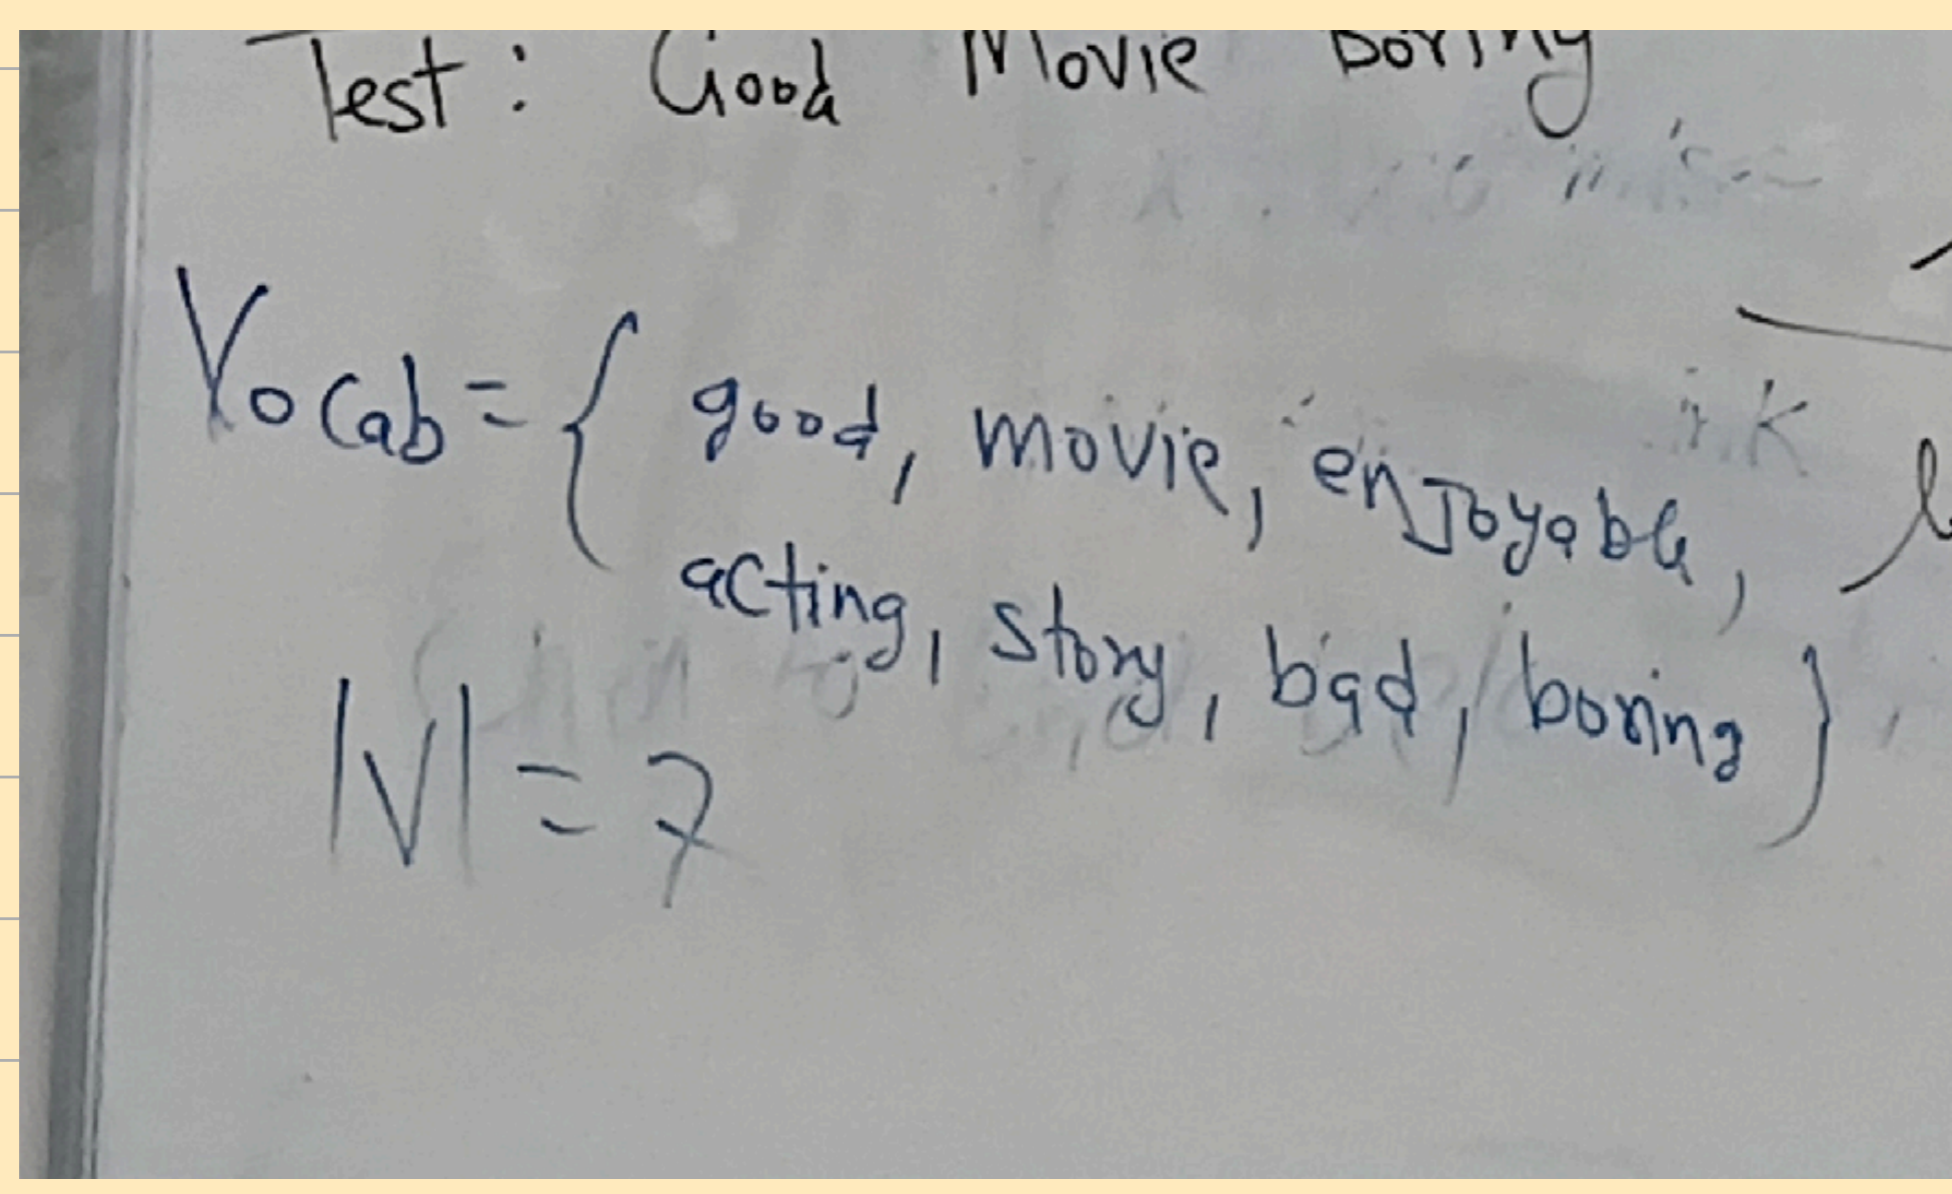 Test: Good Movie Boring
Vocab = { good, movie, enJoyable,
acting, story, bad, boring }
|V| = 7